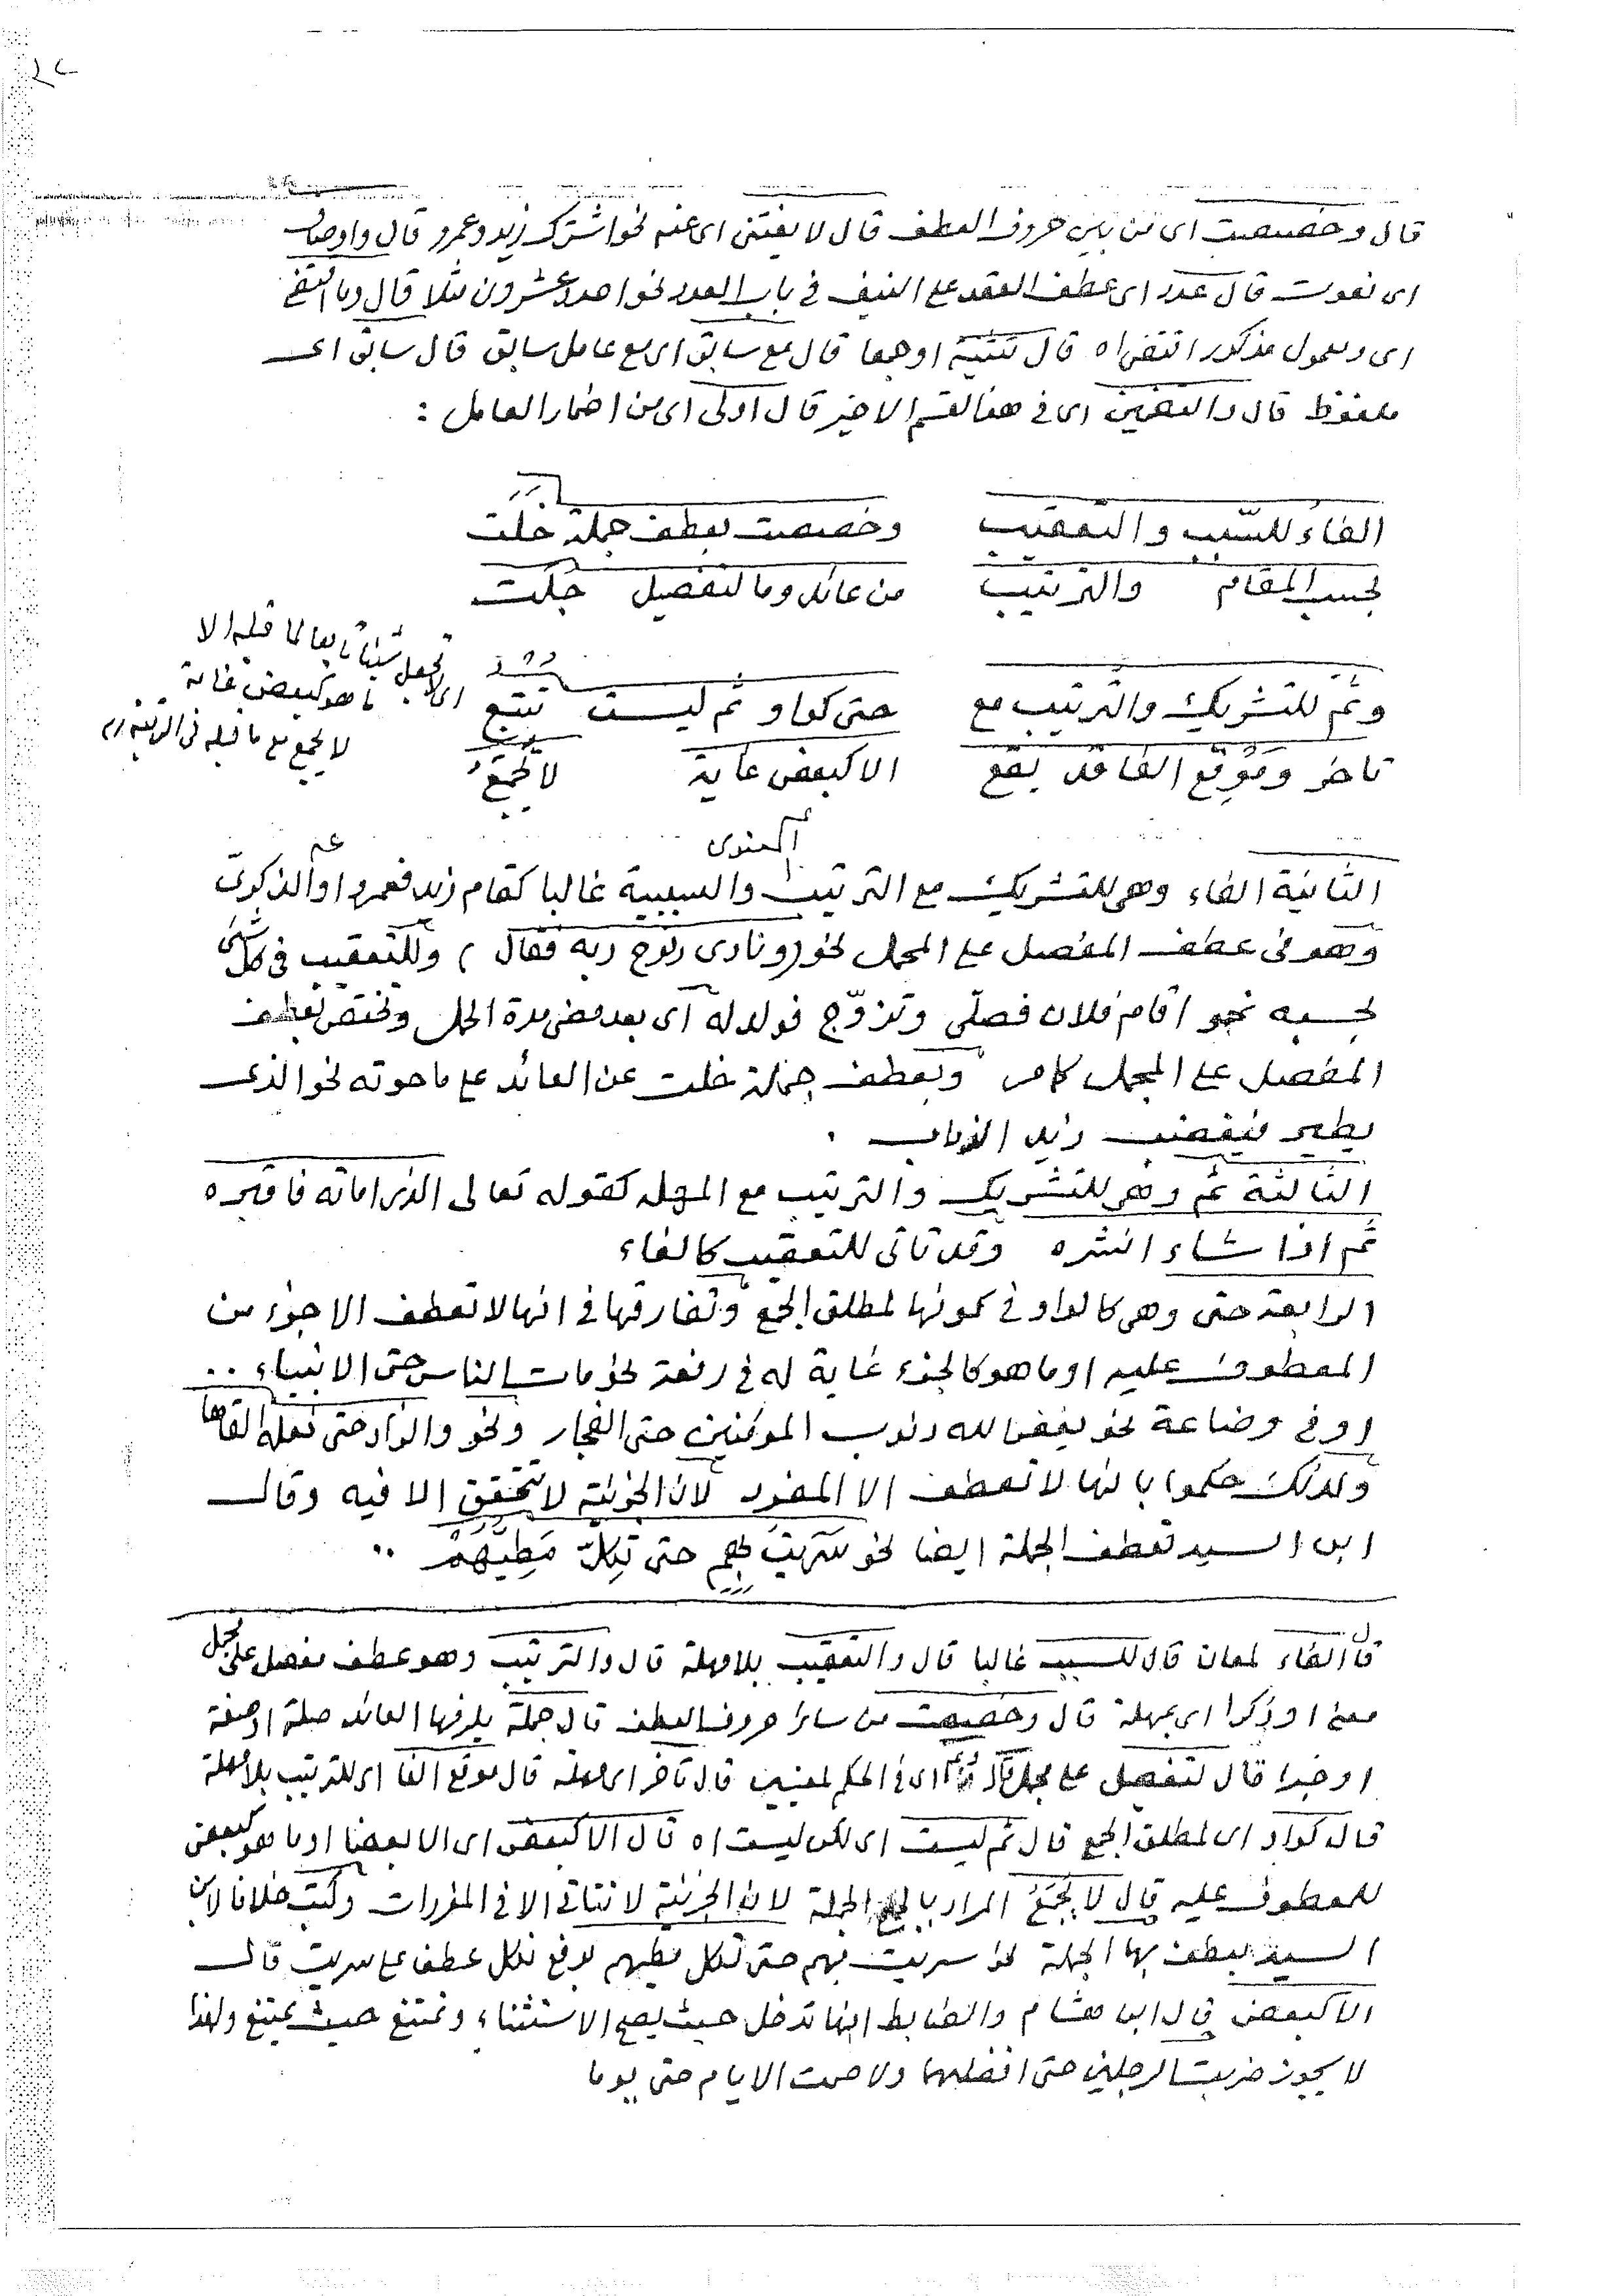 قال وخصصت اى من بين حروف العطف قال لا يغتنى اى عنه نحو اشترك زيد وعمرو قال واوصاف
اى نعوت قال عدد اى عطف العقد على النيف فى باب العدد نحو احد وعشرون مثلا قال وما اقتضى
اى ومعمول مذكور اقتضى اه قال تثنية او جمعا قال مع سابق اى مع عامل سابق قال سابق اى
ملفوظ قال والتضمين اى فى هذا القسم الاخير قال اولى اى من اضمار العامل :
الفاء للسبب والتعقيب وخصصت بعطف جملة خلت
بحسب المقام والترتيب من عائد وما لتفصيل جلت
وثم للتشريك والترتيب مع حتى كواو ثم ليست تتبع
تاخر وموقع الفا قد يقع الا كبعض غاية لا تجمع
اى لا تجعل شيئا تابعا لما قبله الا
ما هو كبعض غاية
لا تجمع مع ما قبله فى الرتبة
الثانية الفاء وهى للتشريك مع الترتيب المعنوى والسببية غالبا كقام زيد فعمرو او الذكرى
وهو فى عطف المفصل على المجمل نحو (ونادى نوح ربه فقال) وللتعقيب فى كل شئ
بحسبه نحو اقام فلان فصلى وتزوج فولد له اى بعد مضى مدة الحمل وتختص بعطف
المفصل على المجمل كما مر وبعطف جملة خلت عن العائد على ما حوته نحو الذى
يطير فيغضب زيد الذباب .
الثالثة ثم وهى للتشريك والترتيب مع المهلة كقوله تعالى الذى اماته فاقبره
ثم اذا شاء انشره وقد تاتى للتعقيب كالفاء
الرابعة حتى وهى كالواو فى كونها لمطلق الجمع وتفارقها فى انها لا تعطف الا جزء من
المعطوف عليه او ما هو كالجزء غاية له فى رفعة نحو مات الناس حتى الانبياء ..
او فى وضاعة نحو يغفر الله ذنوب المؤمنين حتى الفجار ونحو والزاد حتى نعله القاها
ولذلك حكموا بانها لا تعطف الا المفرد لان الجزئية لا تتحقق الا فيه وقال
ابن السيد تعطف الجملة ايضا نحو سريت بهم حتى تكل مطيهم ..
قال الفاء لمعان قال للسبب غالبا قال والتعقيب بلا مهلة قال والترتيب وهو عطف مفصل على مجمل
معنى او ذكرا اى بمهلة قال وخصصت من سائر حروف العطف قال جملة يلزمها العائد صلة او صفة
او خبرا قال لتفصيل على مجمل قال وثم اى فى الحكم لمعنيين قال تاخر اى مهلة قال موقع الفا اى للترتيب بلا مهلة
قال كواو اى لمطلق الجمع قال ثم ليست اى لكن ليست اه قال الا كبعض اى الا بعضا او ما هو كبعض
للمعطوف عليه قال لا تجمع المراد بالجمع الجملة لان الجزئية لا تتاتى الا فى المفردات وكتب خلافا لابن
السيد يعطف بها الجملة نحو سريت بهم حتى تكل مطيهم برفع تكل عطف على سريت قال
الا كبعض قال ابن هشام والضابط انها تدخل حيث يصح الاستثناء وتمتنع حيث يمتنع ولهذا
لا يجوز ضربت الرجلين حتى افضلهما ولا صمت الايام حتى يوما